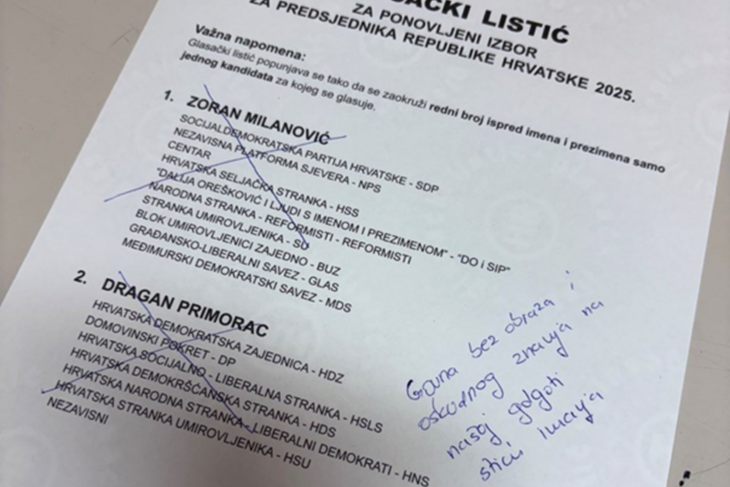 SAČKI LISTIĆ
ZA PONOVLJENI IZBOR
ZA PREDSJEDNIKA REPUBLIKE HRVATSKE 2025.
Važna napomena:
Glasački listić popunjava se tako da se zaokruži redni broj ispred imena i prezimena samo
jednog kandidata za kojeg se glasuje.
1. ZORAN MILANOVIĆ
SOCIJALDEMOKRATSKA PARTIJA HRVATSKE - SDP
NEZAVISNA PLATFORMA SJEVERA - NPS
CENTAR
HRVATSKA SELJAČKA STRANKA - HSS
"DALIJA OREŠKOVIĆ I LJUDI S IMENOM I PREZIMENOM" - "DO i SIP"
NARODNA STRANKA - REFORMISTI - REFORMISTI
STRANKA UMIROVLJENIKA - SU
BLOK UMIROVLJENICI ZAJEDNO - BUZ
GRAĐANSKO-LIBERALNI SAVEZ - GLAS
MEĐIMURSKI DEMOKRATSKI SAVEZ - MDS
2. DRAGAN PRIMORAC
HRVATSKA DEMOKRATSKA ZAJEDNICA - HDZ
DOMOVINSKI POKRET - DP
HRVATSKA SOCIJALNO - LIBERALNA STRANKA - HSLS
HRVATSKA DEMOKRŠĆANSKA STRANKA - HDS
HRVATSKA NARODNA STRANKA - LIBERALNI DEMOKRATI - HNS
HRVATSKA STRANKA UMIROVLJENIKA - HSU
NEZAVISNI
bez obraza i
oskudnog znanja na
našoj golgoti
imanja